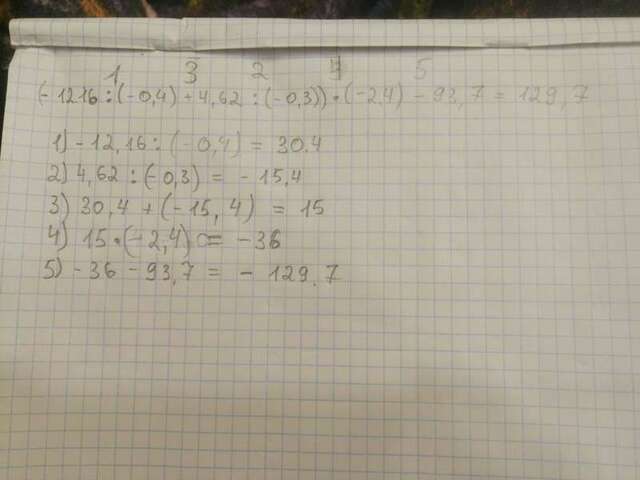 1 3 2 4 5
(-1216:(-0,4)+4,62:(-0,3))•(-2,4)-93,7=129,7
1) -12,16:(-0,4) = 30.4
2) 4,62:(-0,3) = -15,4
3) 30,4+(-15,4) = 15
4) 15•(-2,4) = -36
5) -36-93,7 = -129,7